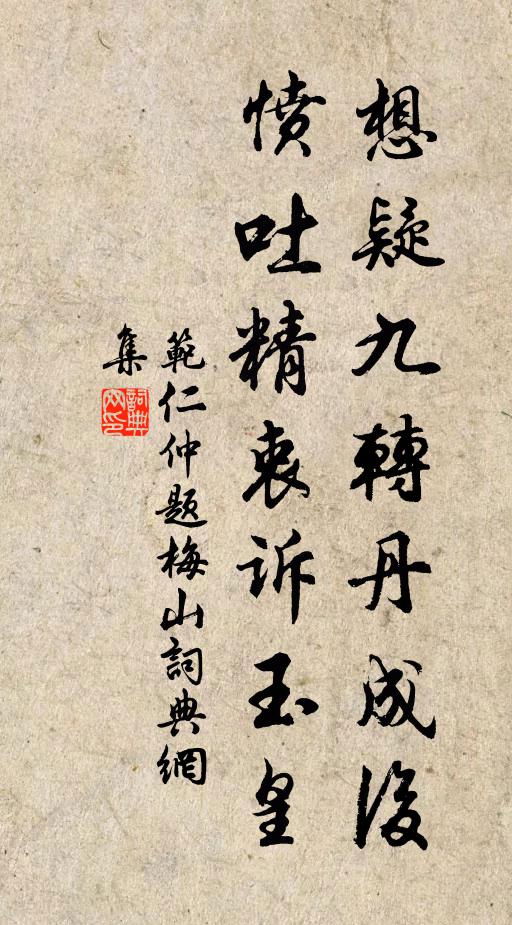 想疑九轉丹成後
憤吐精衷訴玉皇
範仁仲题梅山詞典網
集
詞典
网印